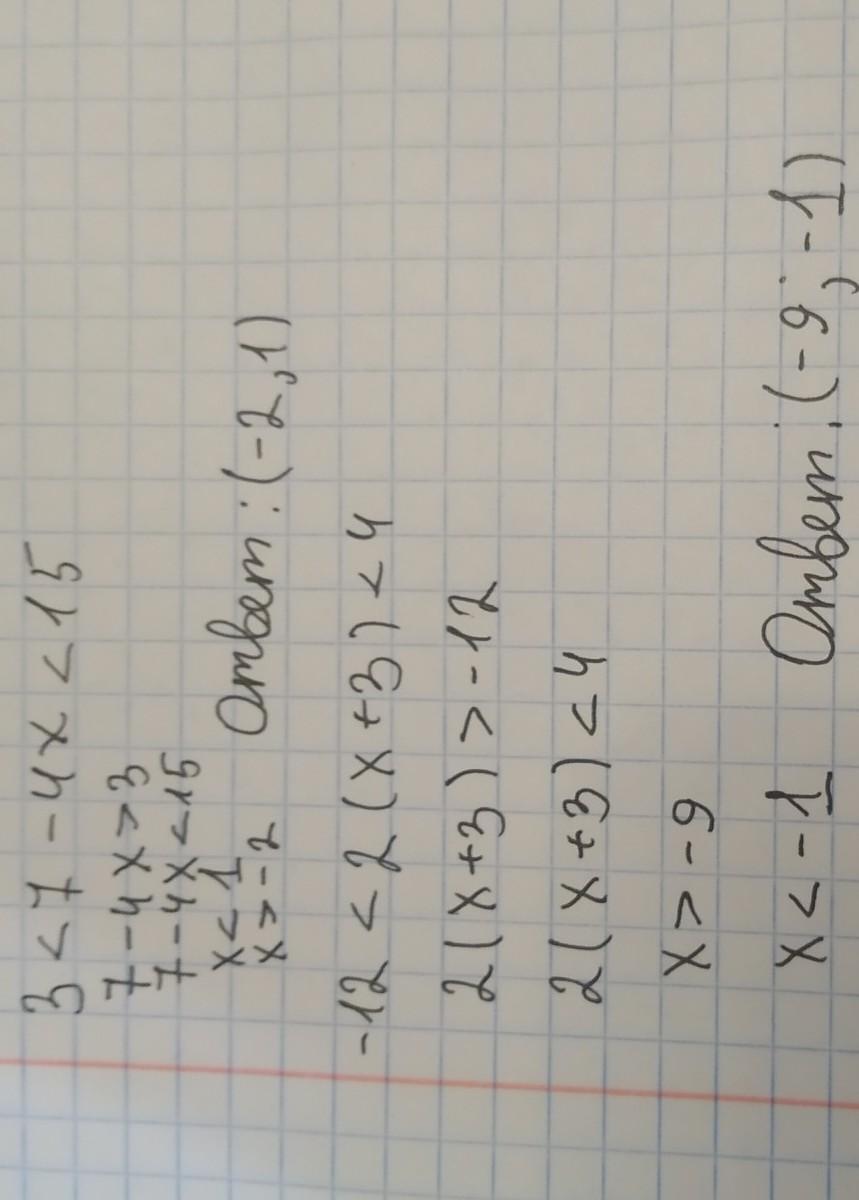 3 < 7 - 4x < 15
7 - 4x > 3
7 - 4x < 15
x < 1
x > -2 Ответ: (-2,1)
-12 < 2(x+3) < 4
2(x+3) > -12
2(x+3) < 4
x > -9
x < -1 Ответ: (-9; -1)